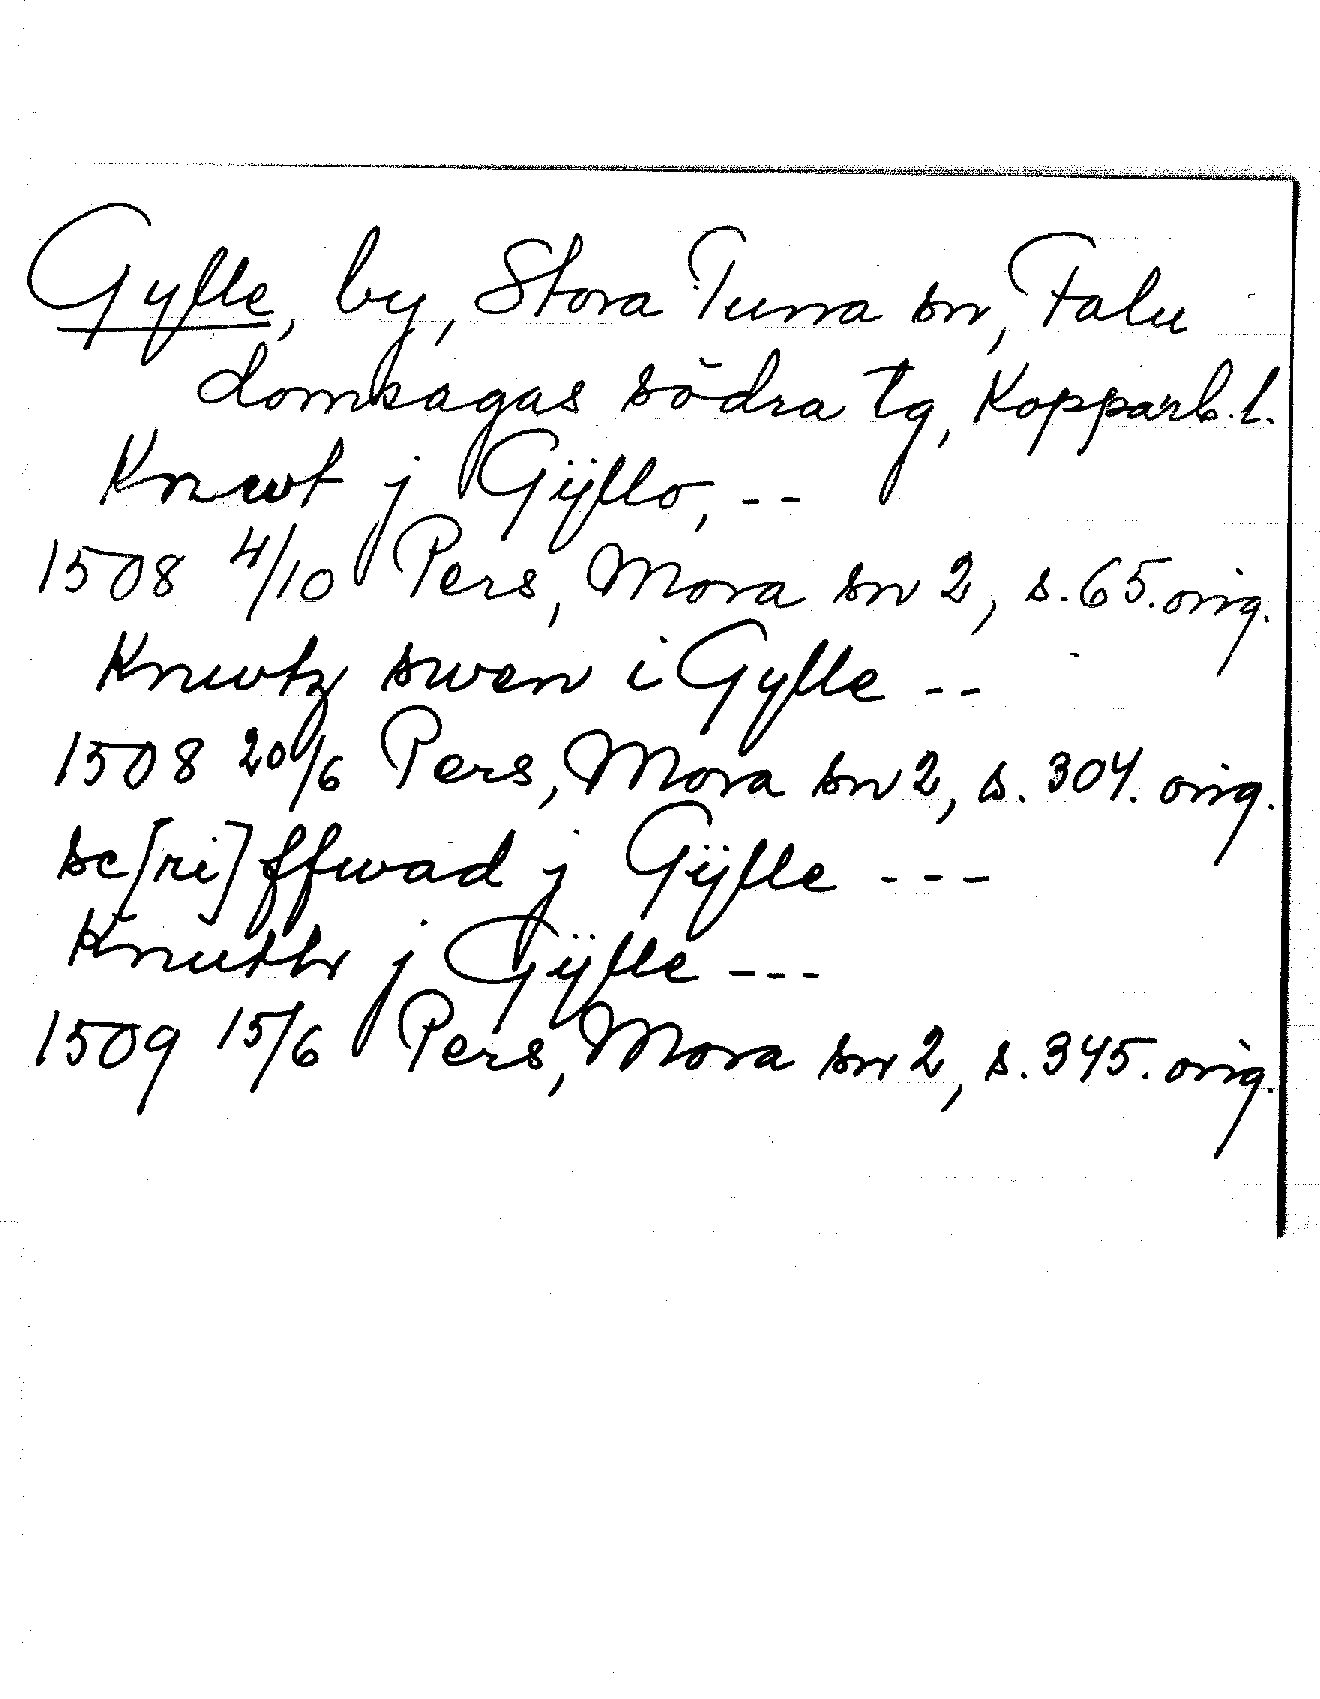 Gylle, by, Stora Tuna sn, Falu
domsagas södra tg, Kopparb. l.
Knwt j Gÿllo, --
1508 4/10 Pers, Mora sn 2, s. 65. orig.
Knwtz swen i Gylle --
1508 20/6 Pers, Mora sn 2, s. 304. orig.
sc[ri]ffwad j Gÿlle ---
Knuthr j Gÿlle ---
1509 15/6 Pers, Mora sn 2, s. 345. orig.